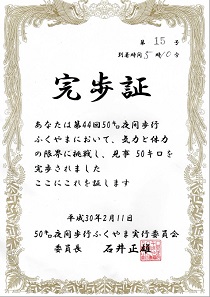 第 15 号
到着時間 5 時 10 分
完歩証
あなたは第44回50㌔夜間歩行
ふくやまにおいて、気力と体力
の限界に挑戦し、見事 50キロを
完歩されました
ここにこれを証します
平成30年2月11日
50㌔夜間歩行ふくやま実行委員会
委員長 石井正雄